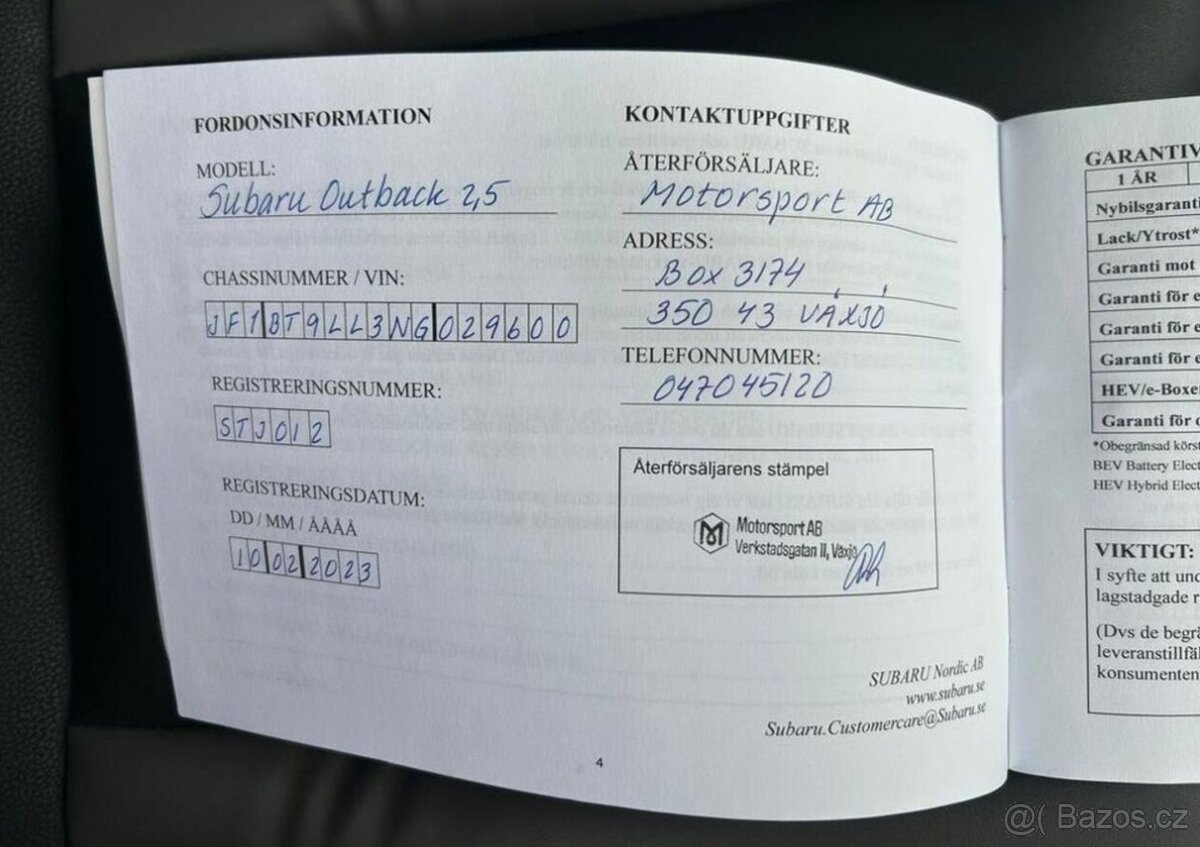 FORDONSINFORMATION
MODELL:
Subaru Outback 2,5
CHASSINUMMER / VIN:
JF1BT9LL3NG029600
REGISTRERINGSNUMMER:
STJ012
REGISTRERINGSDATUM:
DD / MM / ÅÅÅÅ
10 02 2023
KONTAKTUPPGIFTER
ÅTERFÖRSÄLJARE:
Motorsport AB
ADRESS:
Box 3174
350 43 VÄXJÖ
TELEFONNUMMER:
047045120
Återförsäljarens stämpel
Motorsport AB
Verkstadsgatan 11, Växjö
SUBARU Nordic AB
www.subaru.se
Subaru.Customercare@Subaru.se
4
GARANTIV
1 ÅR
Nybilsgaranti
Lack/Ytrost*
Garanti mot
Garanti för e
Garanti för e
Garanti för e
HEV/e-Boxer
Garanti för
*Obegränsad körst
BEV Battery Elect
HEV Hybrid Elect
VIKTIGT:
I syfte att und
lagstadgade r
(Dvs de begrä
leveranstillfäl
konsumenten
@( Bazos.cz